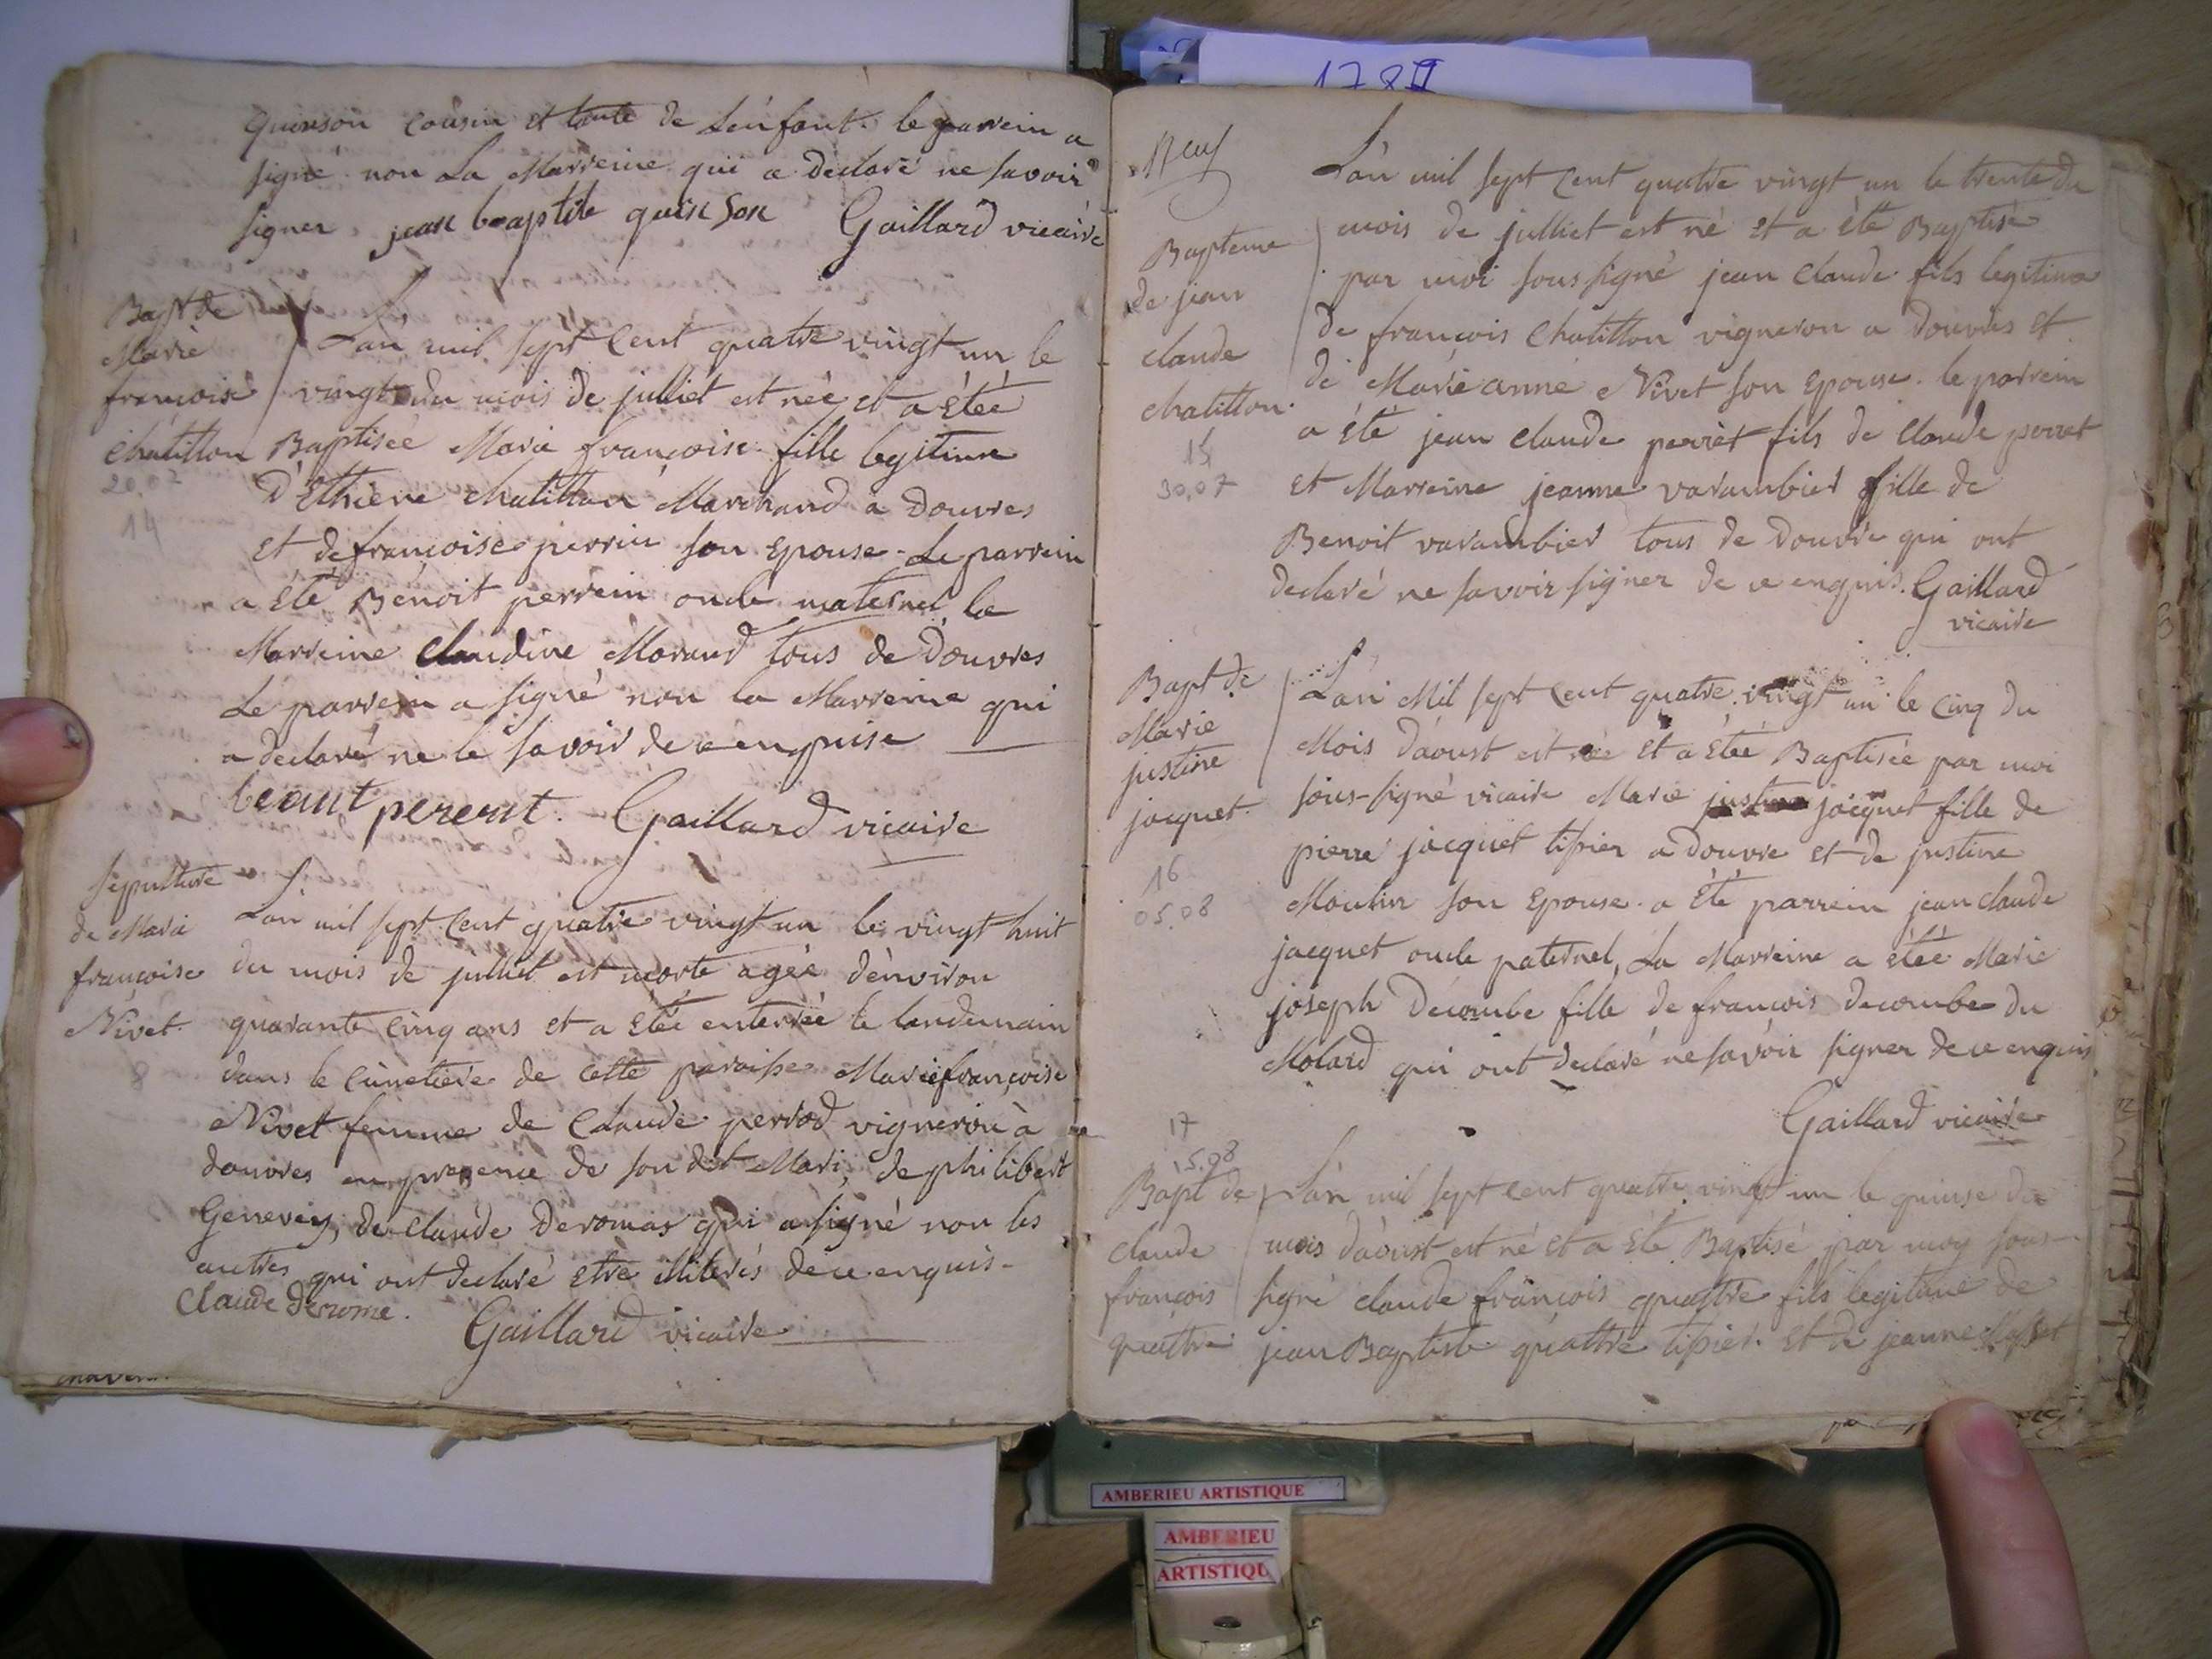 quinson cousin et tante de L'enfant. le parrein a
signé non La Marreine qui a declaré ne savoir
signer. jean baaptite quinson Gaillard vicaire
Bapt de
Marie
françoise
chatillon
20.07
14
L'an mil sept Cent quatre vingt un le
vingt du mois de julliet est née et a étéé
Baptisée Marie françoise fille legitime
D'Ethiene chatillon Marchand a Douvres
et de françoise perrin son Epouse. Le parrein
a été Benoit perrein oncle maternel, la
Marreine Claudine Morand tous de Douvres
Le parrein a signé non la Marreine qui
a declaré ne le savoir de ce enquise
Gaillard vicaire
sepulture
de Marie
françoise
Nivet.
8
L'an mil sept Cent quatre vingt un le vingt huit
du mois de julliet est morte agée d'environ
quarante cinq ans et a étéé enterrée le lendemain
dans le cimetiere de cette paroisse Marie françoise
Nivet femme de Claude perrod vigneron à
douvres en presence de son dit Mari, de philibert
Genevey, de Claude Deromas qui a signé non les
autres qui ont declaré etre illiterés de ce enquis.
Claude Derome. Gaillard vicaire
1781
Neuf
Bapteme
de jean
claude
chatillon.
15
30.07
L'an mil sept Cent quatre vingt un le trente du
mois de julliet est né et a été Baptisé
par moi sous signé jean Claude fils legitime
de françois Chatillon vigneron a Douvres et
de Marie anne Nivet son Epouse. le parrein
a été jean claude perret fils de Claude perret
et Marreine jeanne varambier fille de
Benoit varambier tous de Douvre qui ont
declaré ne savoir signer de ce enquis. Gaillard
vicaire
Bapt de
Marie
justine
jacquet.
16
05.08
L'an Mil sept Cent quatre vingt un le Cinq du
Mois d'aoust est née et a étéé Baptisée par moi
sous-signé vicaire Marie justine jacquet fille de
pierre jacquet tissier a Douvre et de justine
Moulin son Epouse. a été parrein jean claude
jacquet oncle paternel, La Marreine a étéé Marie
joseph Decombe fille de françois decombe du
Molard qui ont declaré ne savoir signer de ce enquis
Gaillard vicaire
17
15.08
Bapt de
claude
françois
quattre
L'an mil sept Cent quatre vingt un le quinse du
mois d'aoust est né et a été Baptisé par moy sous-
signé claude françois quattre fils legitime de
jean Baptiste quattre tissier. et de jeanne
AMBERIEU ARTISTIQUE
AMBERIEU
ARTISTIQU